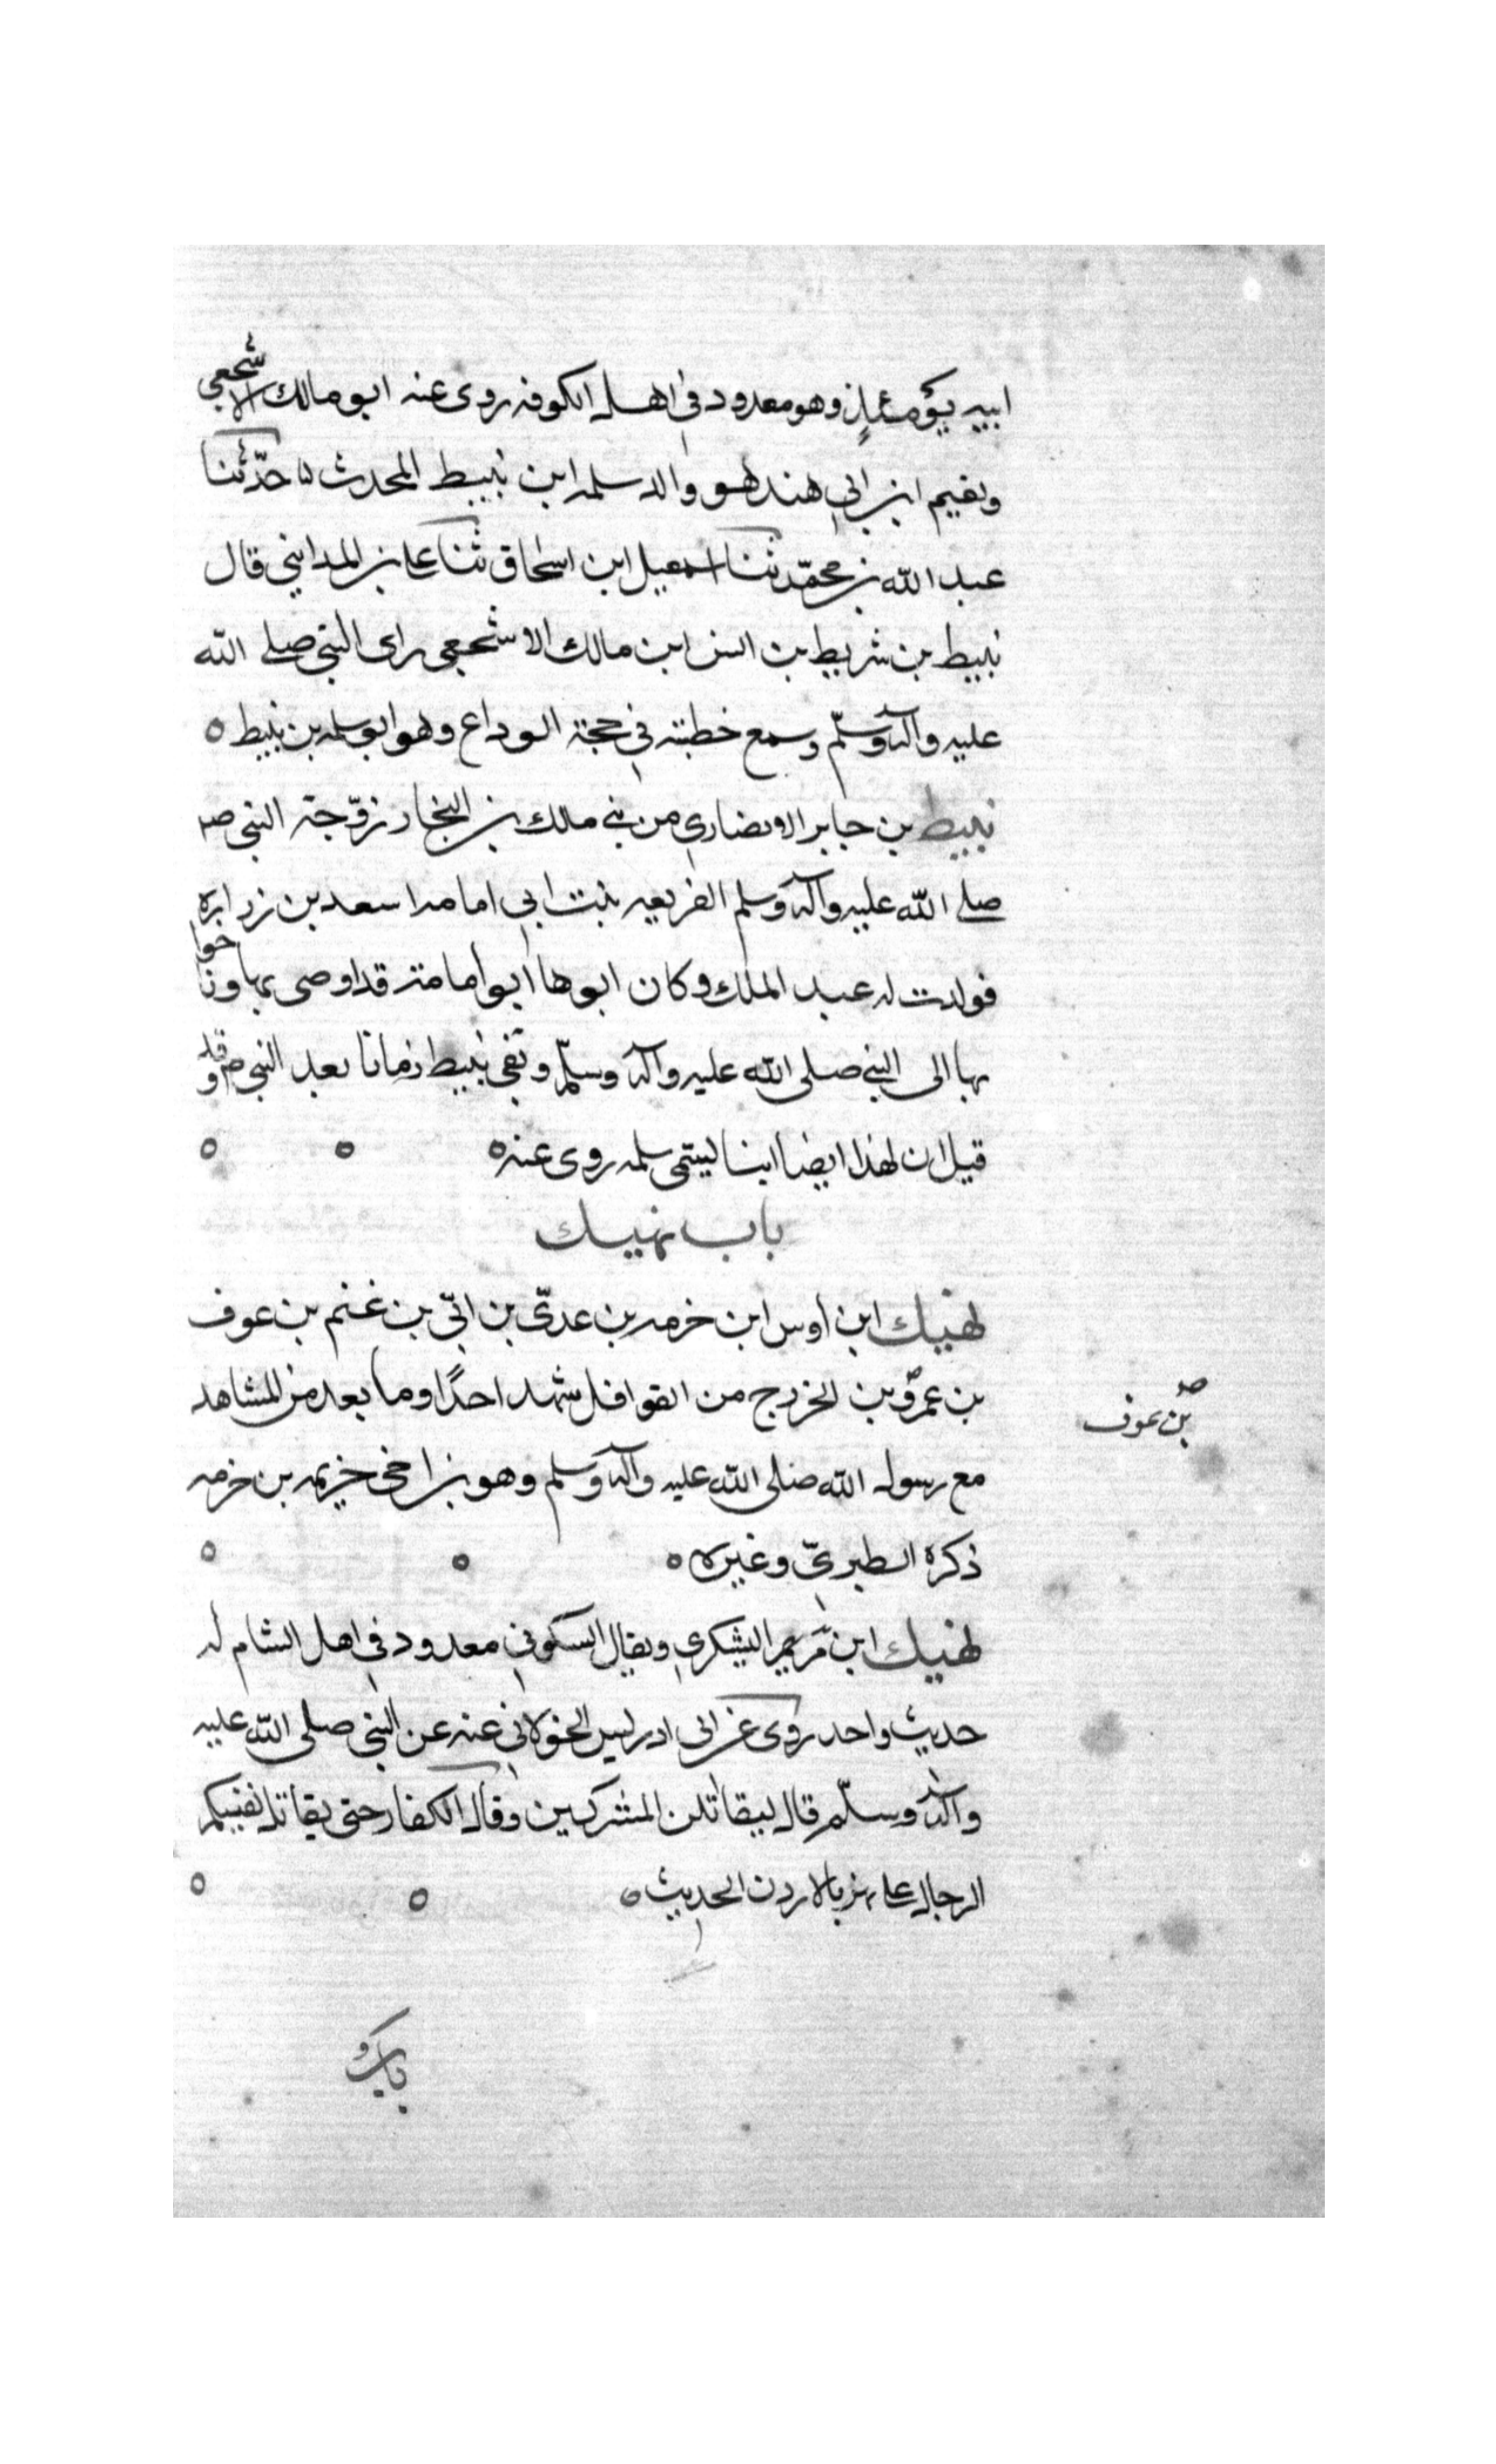 ابيه يومئذ وهو معدود في اهل الكوفه روى عنه ابو مالك الاشجعي
ونعيم ابن ابي هند هو والد سلمه ابن نبيط المحدث حدّثنا
عبد الله بن محمّد ثنا اسمعيل ابن اسحاق ثنا علي بن المدايني قال
نبيط بن شريط بن انس ابن مالك الاشجعي راى النبي صلى الله
عليه وآله وسلّم وسمع خطبته في حجة الوداع وهو ابو سلمه بن نبيط ه
نبيط بن جابر الانصاري من بني مالك بن النجار زوّجته النبي ص
صلى الله عليه وآله وسلم الفريعه بنت ابي امامه اسعد بن زراره
فولدت له عبد الملك وكان ابوها ابو امامة قد اوصى بها واخواتها
بها الى النبي صلى الله عليه وآله وسلّم وبقي نبيط زمانا بعد النبي ص وقد
قيل ان لهذا ايضا ابنا ليسمى سلمه روى عنه ه ه ه
باب نهيك
نهيك ابن اوس ابن خزمه بن عدىّ بن ابىّ بن غنم بن عوف
بن عمرو بن الخزرج من القوافل شهد احدًا وما بعد من المشاهد
بن عوف صح
مع رسول الله صلى الله عليه وآله وسلم وهو بن اخي خزيمه بن خزمه
ذكره الطبريّ وغيره ه ه ه
نهيك ابن مريم اليشكري ويقال السكوني معدود في اهل الشام له
حديث واحد روى عن ابى ادريس الخولاني عنه عن النبي صلى الله عليه
وآله وسلّم قال ليقاتلن المشركين وقال الكفار حتى يقاتل بقيتكم
الدجال على نهر بالاردن الحديث ه ه ه